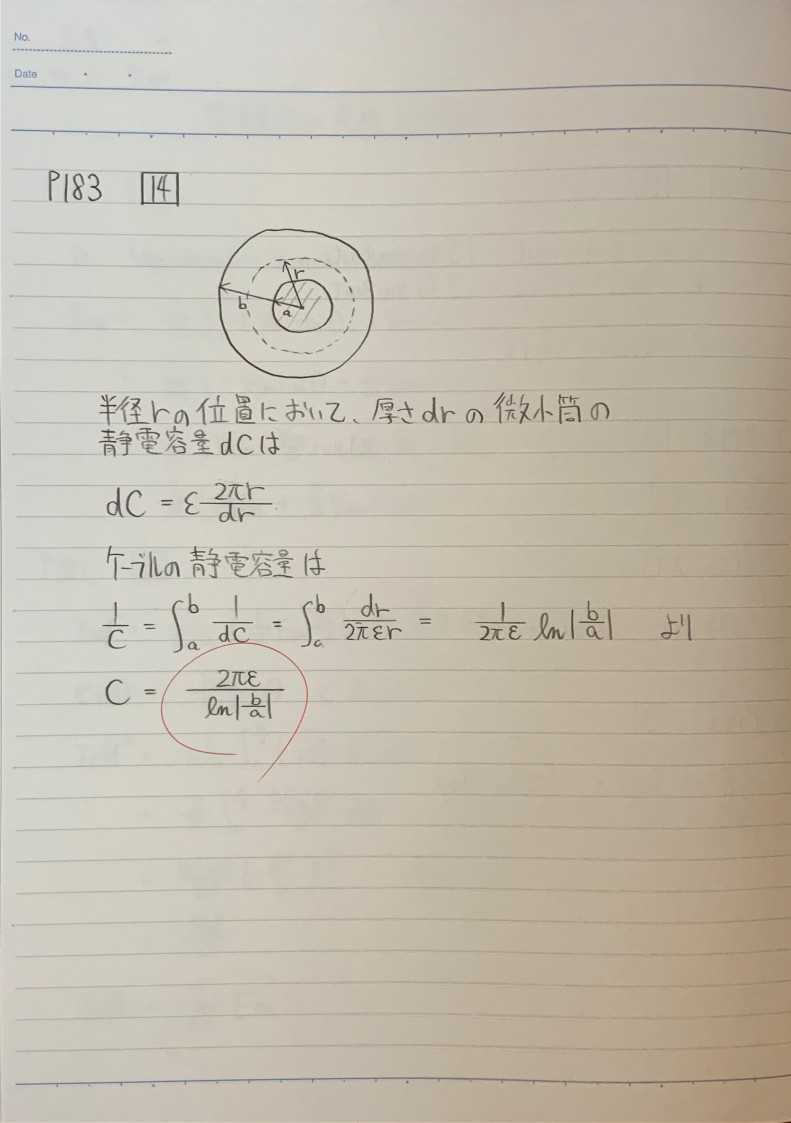 No.
Date
P183 14
r
b
a
半径rの位置において、厚さdrの微小筒の
静電容量dCは
dC = ε 2πr/dr
ケーブルの静電容量は
1/C = ∫_a^b 1/dC = ∫_a^b dr/2πεr = 1/2πε ln|b/a| より
C = 2πε/ln|b/a|